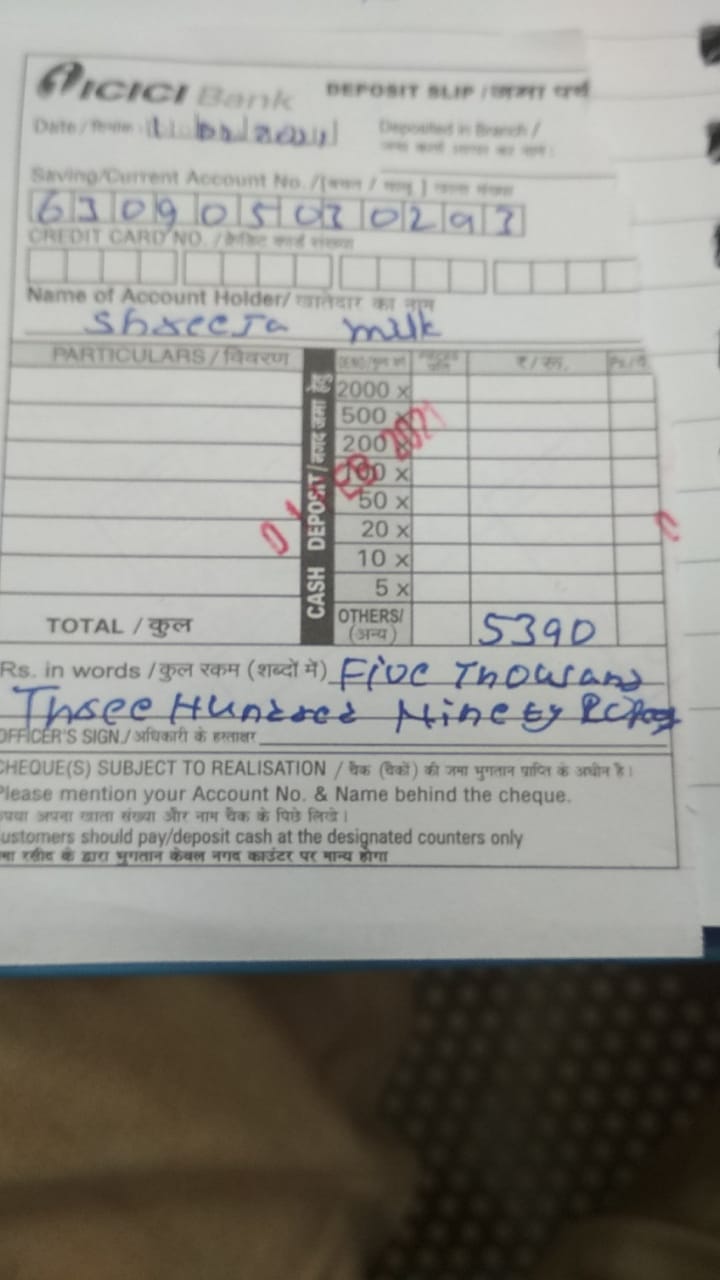 ICICI Bank
DEPOSIT SLIP / जमा पर्ची
Date / दिनांक :
Deposited in Branch /
Saving/Current Account No. /[बचत / चालू ] खाता संख्या
CREDIT CARD NO. / क्रेडिट कार्ड संख्या
Name of Account Holder/ खातेदार का नाम
Shreeja milk
PARTICULARS / विवरण
CASH DEPOSIT / नगद जमा हेतु
₹/रू.
2000 x
500 x
200 x
100 x
50 x
20 x
10 x
5 x
FEB 2021
TOTAL / कुल
OTHERS/
(अन्य)
5390
Rs. in words / कुल रकम (शब्दों में) Five Thousand
Three Hundred Ninety
OFFICER'S SIGN./ अधिकारी के हस्ताक्षर
CHEQUE(S) SUBJECT TO REALISATION / चैक (चैकों) की जमा भुगतान प्राप्ति के अधीन है।
Please mention your Account No. & Name behind the cheque.
कृपया अपना खाता संख्या और नाम चैक के पिछे लिखे।
Customers should pay/deposit cash at the designated counters only
जमा रसीद के द्वारा भुगतान केवल नगद काउंटर पर मान्य होगा